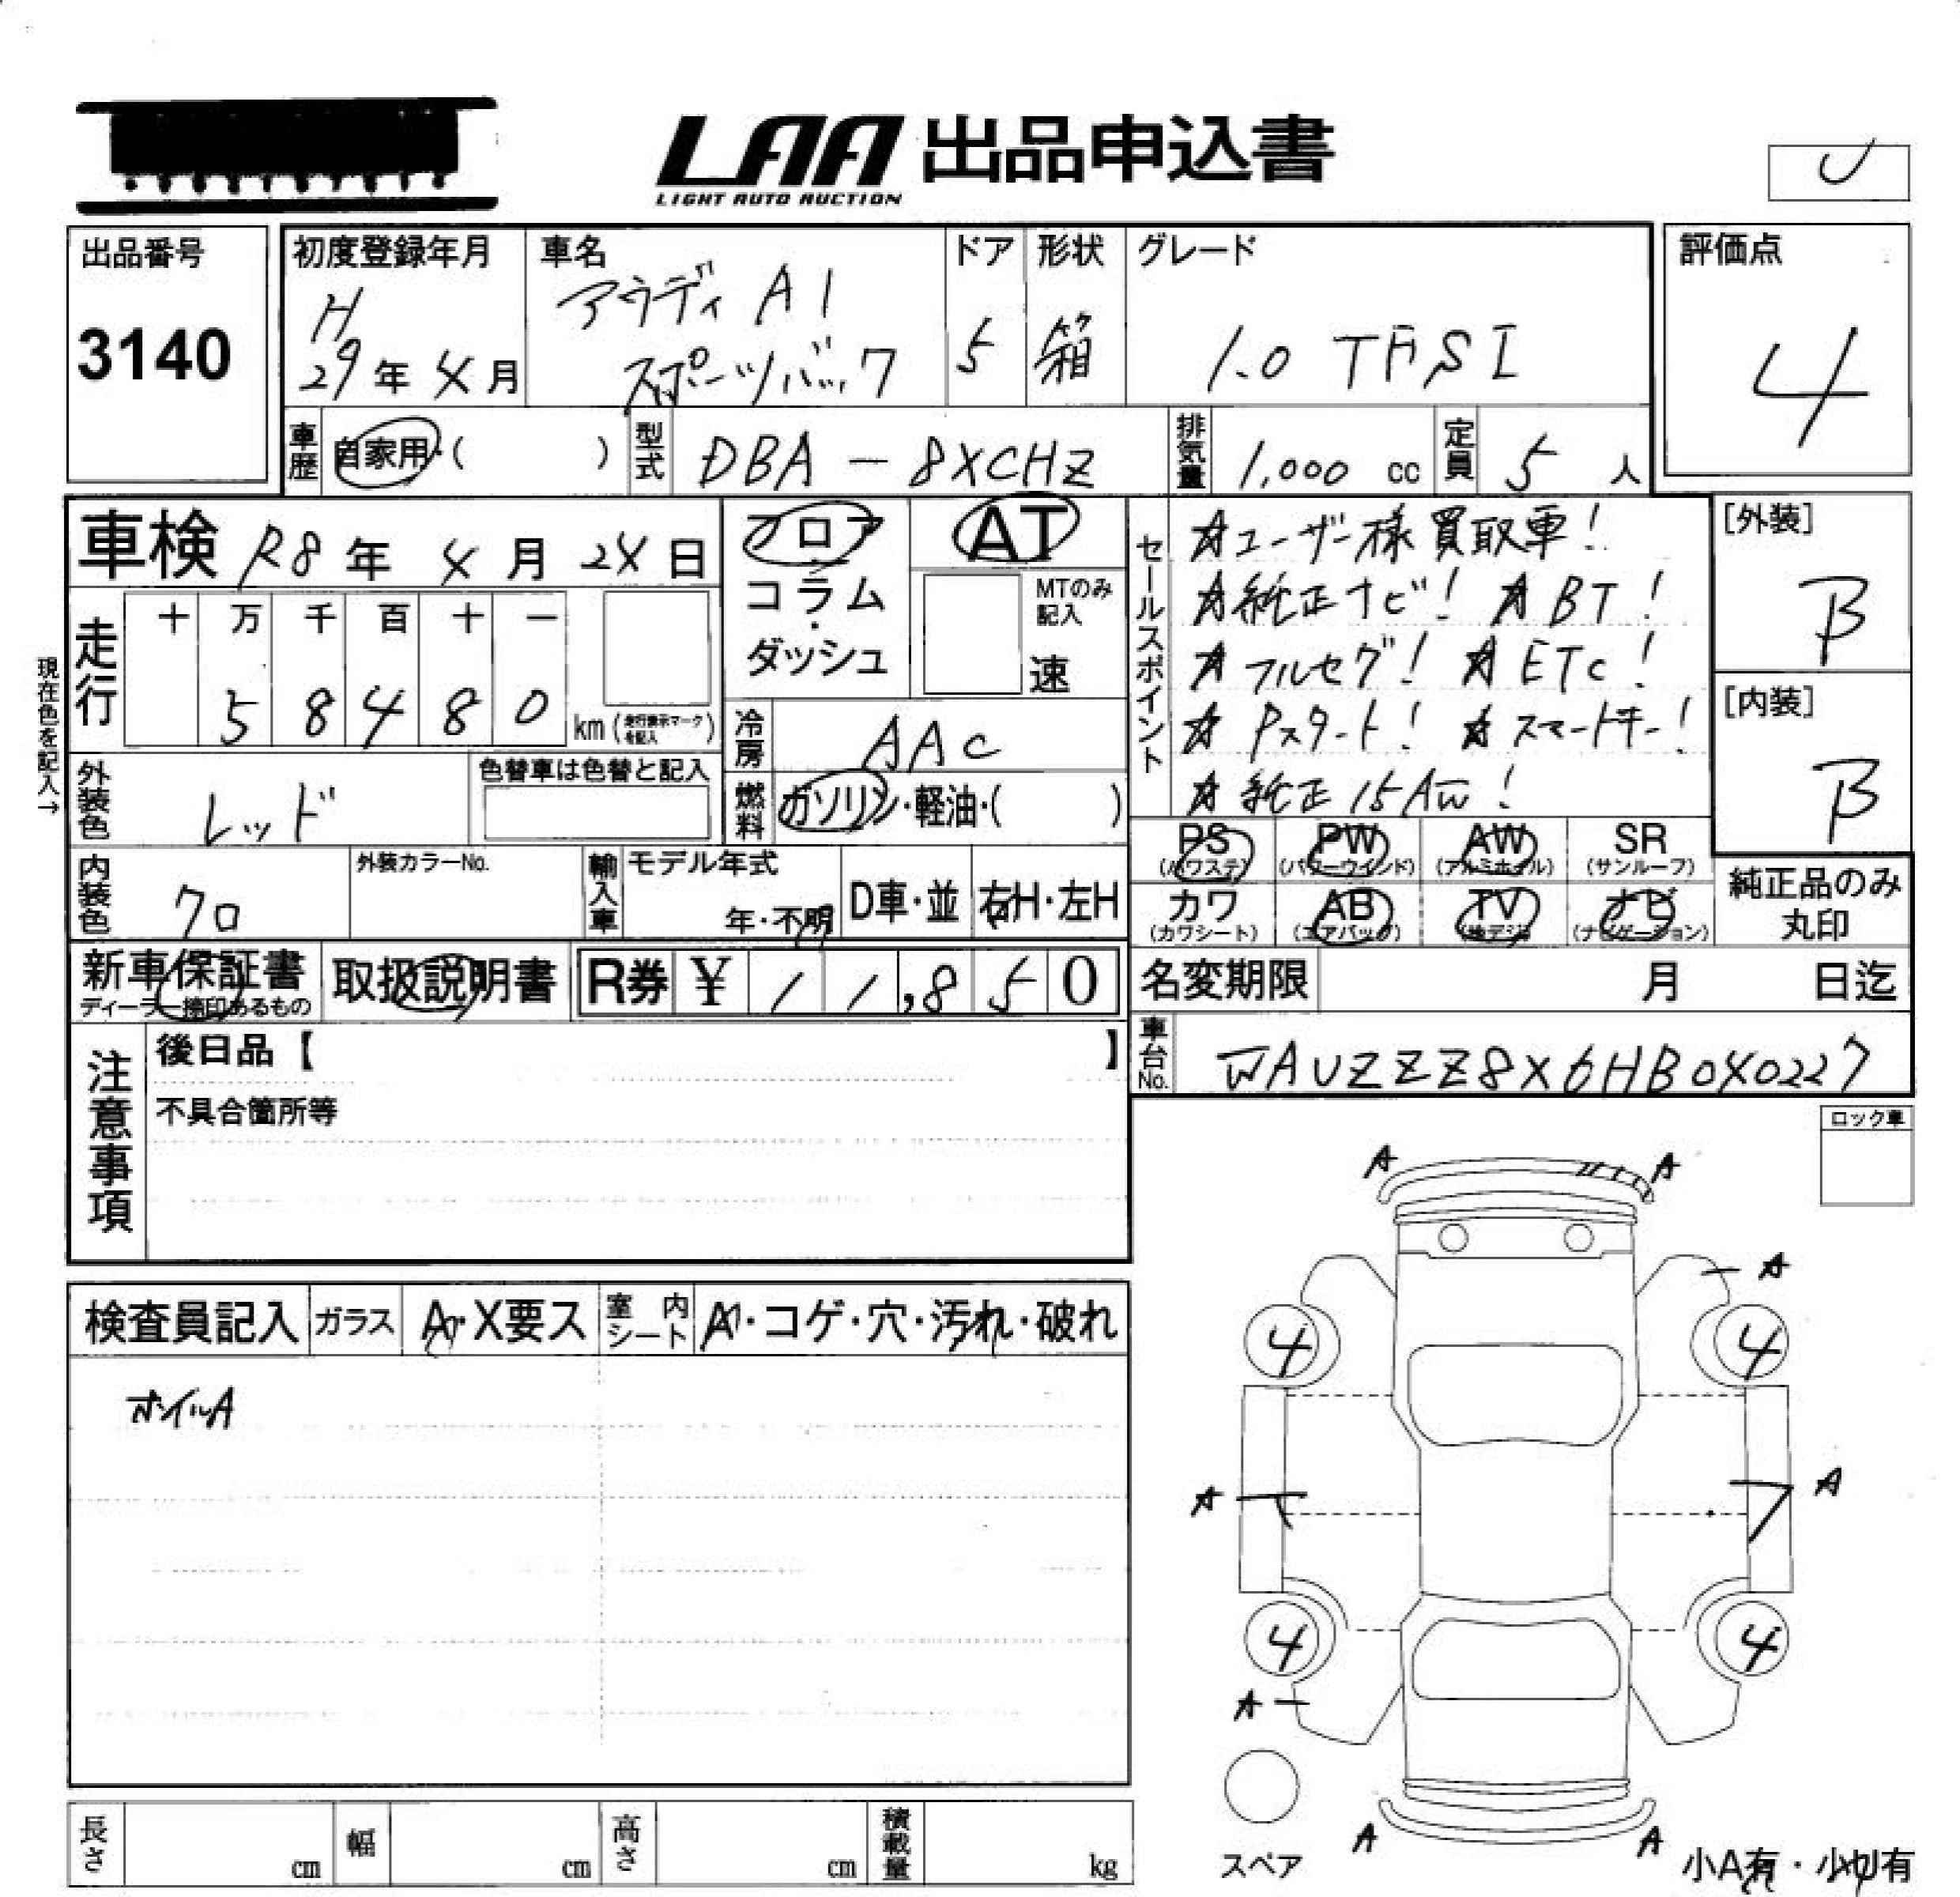 LAA 出品申込書
LIGHT AUTO AUCTION
出品番号
3140
初度登録年月
H
29年 4月
車名
アウディ A1
スポーツバック
ドア
5
形状
箱
グレード
1.0 TFSI
評価点
4
車歴
自家用・( )
型式
DBA-8XCHZ
排気量
1,000 cc
定員
5 人
車検 R8年 4月 24日
フロア
コラム・
ダッシュ
AT
MTのみ
記入
速
セールスポイント
☆ユーザー様買取車!
☆純正ナビ! ☆BT!
☆フルセグ! ☆ETC!
☆Pスタート! ☆スマートキー!
☆純正15AW!
[外装]
B
[内装]
B
現在色を記入→
走行
十 万 千 百 十 一
5 8 4 8 0
km (走行表示マークを記入)
冷房
AAC
外装色
レッド
色替車は色替と記入
燃料
ガソリン・軽油・( )
PS
(パワステ)
PW
(パワーウインド)
AW
(アルミホイル)
SR
(サンルーフ)
カワ
(カワシート)
AB
(エアバッグ)
TV
(地デジ)
ナビ
(ナビゲーション)
純正品のみ
丸印
内装色
クロ
外装カラーNo.
輸入車
モデル年式
年・不明
D車・並
右H・左H
新車保証書
ディーラー捺印あるもの
取扱説明書
R券 ¥ 1 1,8 5 0
名変期限 月 日迄
車台No.
WAUZZZ8X6HB040227
注意事項
後日品【 】
不具合箇所等
ロック車
検査員記入
ガラス
A・X要ス
室内シート
A・コゲ・穴・汚れ・破れ
ホイルA
A A
A
4 4
A A
4 4
A
A A
スペア
小A有・小U有
長さ cm
幅 cm
高さ cm
積載量 kg